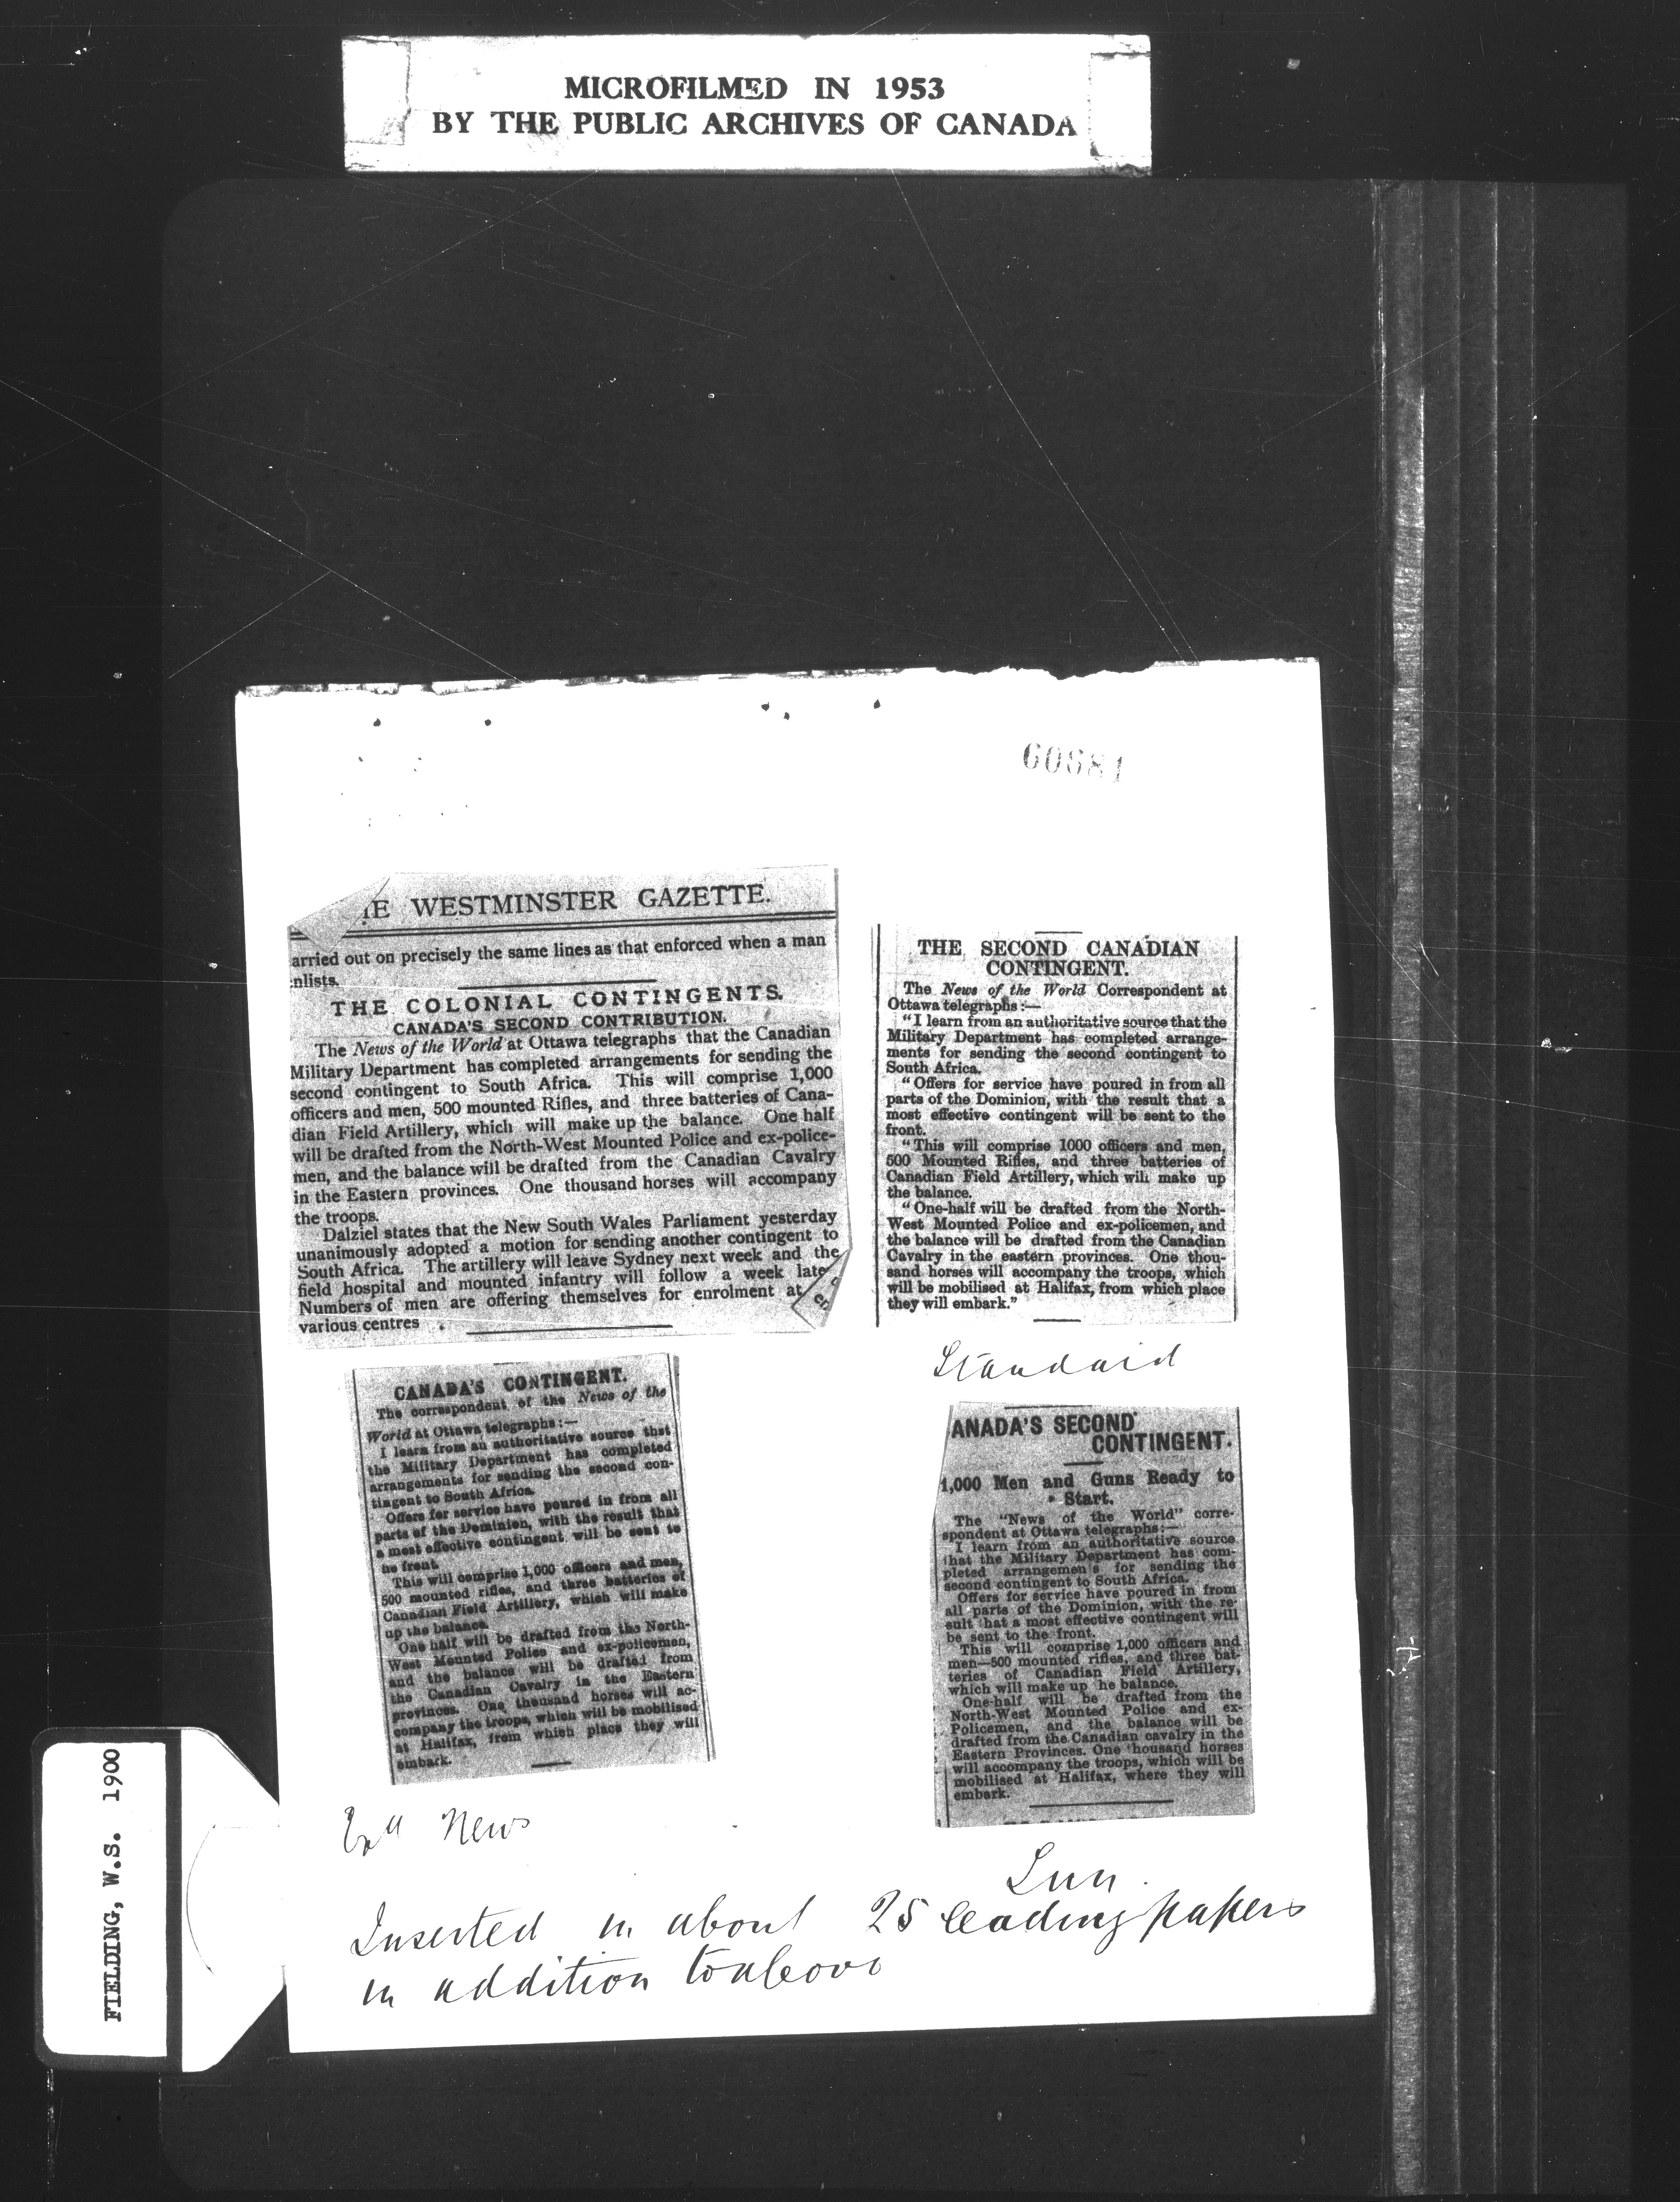 MICROFILMED IN 1953
BY THE PUBLIC ARCHIVES OF CANADA
60681
E WESTMINSTER GAZETTE.
arried out on precisely the same lines as that enforced when a man
nlists.
THE COLONIAL CONTINGENTS.
CANADA'S SECOND CONTRIBUTION.
The News of the World at Ottawa telegraphs that the Canadian
Military Department has completed arrangements for sending the
second contingent to South Africa. This will comprise 1,000
officers and men, 500 mounted Rifles, and three batteries of Cana-
dian Field Artillery, which will make up the balance. One half
will be drafted from the North-West Mounted Police and ex-police-
men, and the balance will be drafted from the Canadian Cavalry
in the Eastern provinces. One thousand horses will accompany
the troops.
Dalziel states that the New South Wales Parliament yesterday
unanimously adopted a motion for sending another contingent to
South Africa. The artillery will leave Sydney next week and the
field hospital and mounted infantry will follow a week late
Numbers of men are offering themselves for enrolment at
various centres
THE SECOND CANADIAN
CONTINGENT.
The News of the World Correspondent at
Ottawa telegraphs:—
"I learn from an authoritative source that the
Military Department has completed arrange-
ments for sending the second contingent to
South Africa.
"Offers for service have poured in from all
parts of the Dominion, with the result that a
most effective contingent will be sent to the
front.
"This will comprise 1000 officers and men,
500 Mounted Rifles, and three batteries of
Canadian Field Artillery, which will make up
the balance.
"One-half will be drafted from the North-
West Mounted Police and ex-policemen, and
the balance will be drafted from the Canadian
Cavalry in the eastern provinces. One thou-
sand horses will accompany the troops, which
will be mobilised at Halifax, from which place
they will embark."
Standard
CANADA'S CONTINGENT.
The correspondent of the News of the
World at Ottawa telegraphs:—
I learn from an authoritative source that
the Military Department has completed
arrangements for sending the second con-
tingent to South Africa.
Offers for service have poured in from all
parts of the Dominion, with the result that
a most effective contingent will be sent to
he front.
This will comprise 1,000 officers and men,
500 mounted rifles, and three batteries of
Canadian Field Artillery, which will make
up the balance.
One half will be drafted from the North-
West Mounted Police and ex-policemen,
and the balance will be drafted from
the Canadian Cavalry in the Eastern
provinces. One thousand horses will ac-
company the troops, which will be mobilised
at Halifax, from which place they will
embark.
News
ANADA'S SECOND
CONTINGENT.
1,000 Men and Guns Ready to
Start.
The "News of the World" corre-
spondent at Ottawa telegraphs:—
I learn from an authoritative source
that the Military Department has com-
pleted arrangemen's for sending the
second contingent to South Africa.
Offers for service have poured in from
all parts of the Dominion, with the re-
sult that a most effective contingent will
be sent to the front.
This will comprise 1,000 officers and
men—500 mounted rifles, and three bat-
teries of Canadian Field Artillery,
which will make up he balance.
One-half will be drafted from the
North-West Mounted Police and ex-
Policemen, and the balance will be
drafted from the Canadian cavalry in the
Eastern Provinces. One housand horses
will accompany the troops, which will be
mobilised at Halifax, where they will
embark.
Sun.
Inserted in about 25 leading papers
in addition to above
FIELDING, W.S. 1900